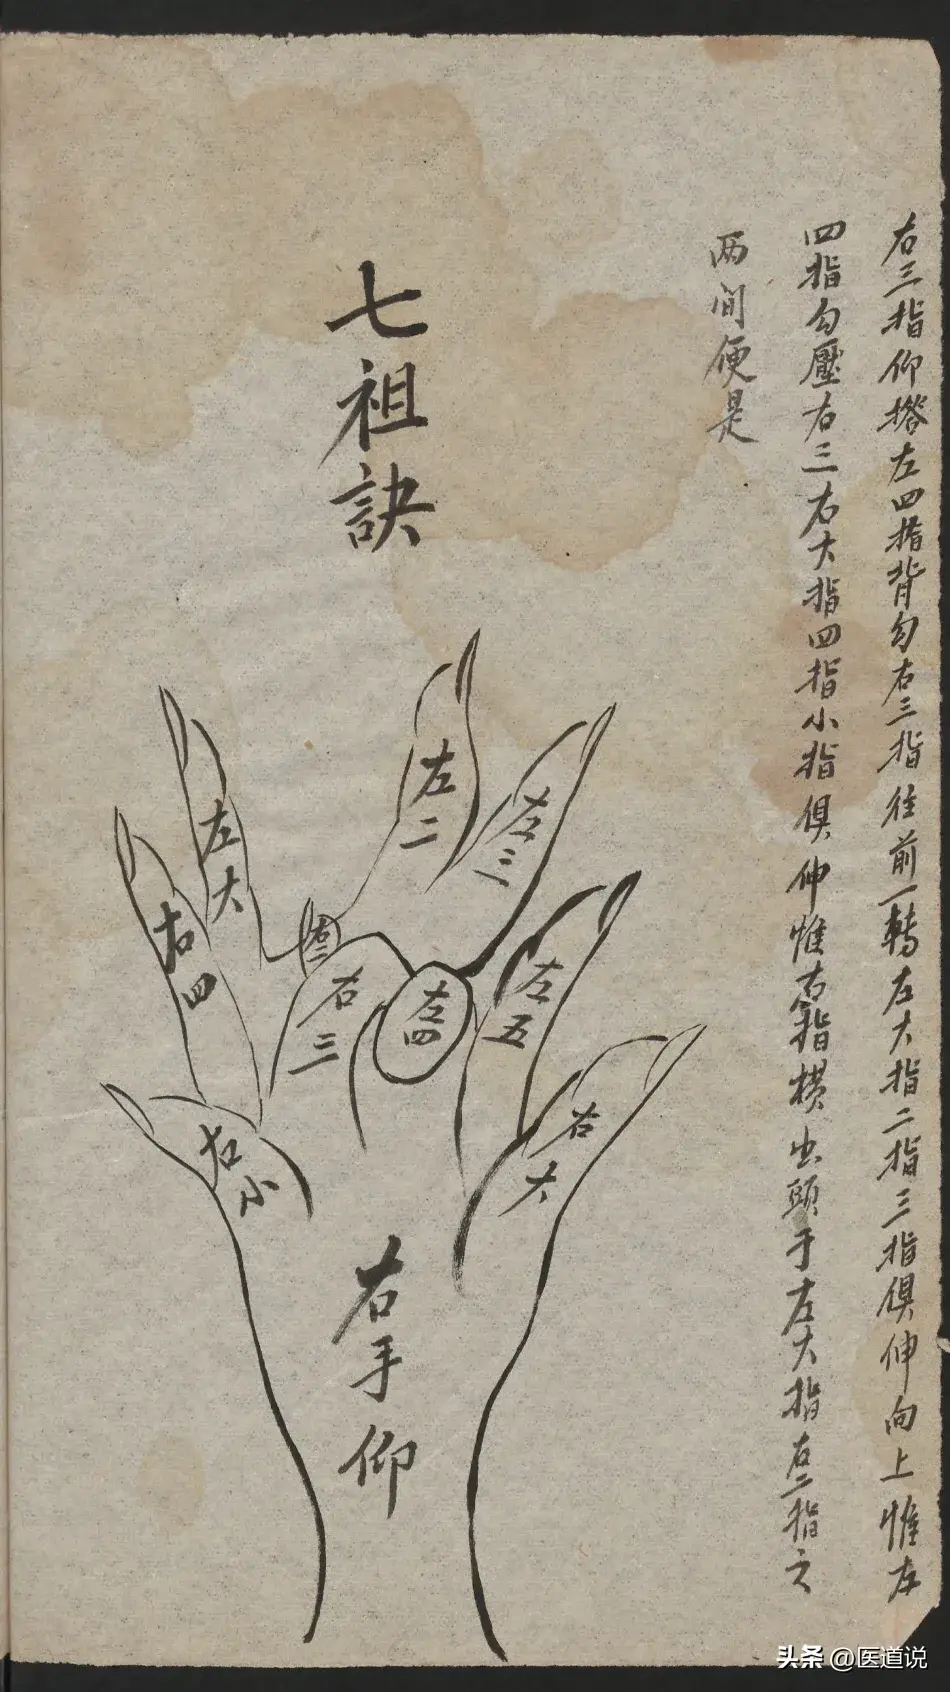 右三指仰搭左四指背勾右三指往前一轉左大指二指三指俱伸向上惟左
四指勾壓右三右大指四指小指俱伸惟右二指横出頭于左大指左二指之
两间便是
七祖訣
左二
左三
左大
右四
右二
右三
左四
左五
右小
右大
右手仰
头条 @医道说